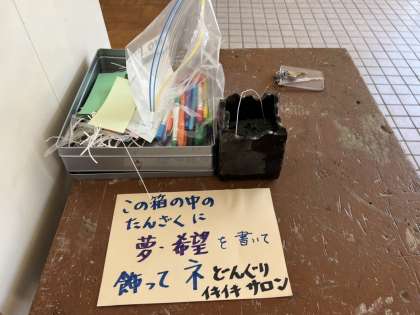 この箱の中の
たんざくに
夢・希望を書いて
飾ってネ どーんぐり
イキイキサロン